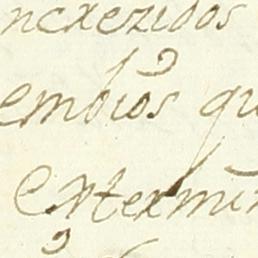 ncrezidos
embios qu
Extermin